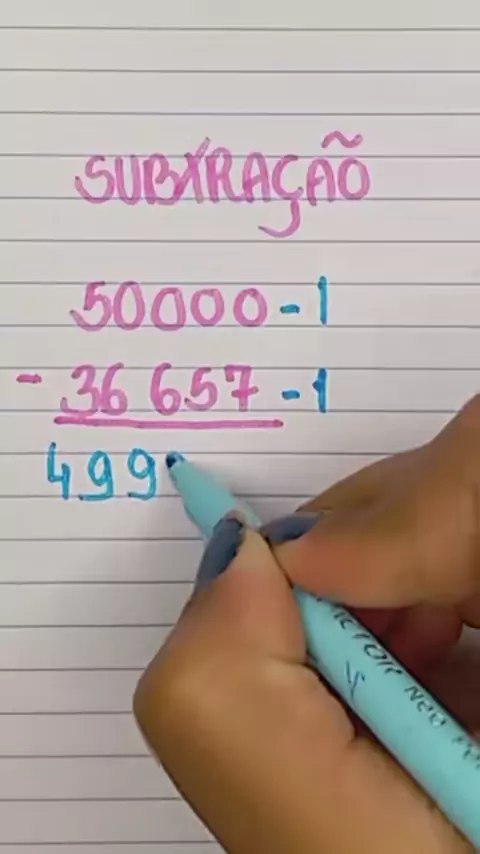 SUBTRAÇÃO
50000 - 1
- 36 657 - 1
499